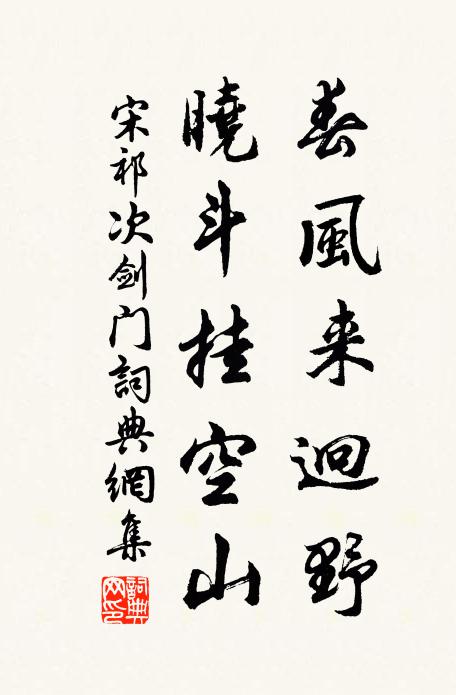 春風来迥野
曉斗挂空山
宋祁次剑门詞典網集
詞典网印